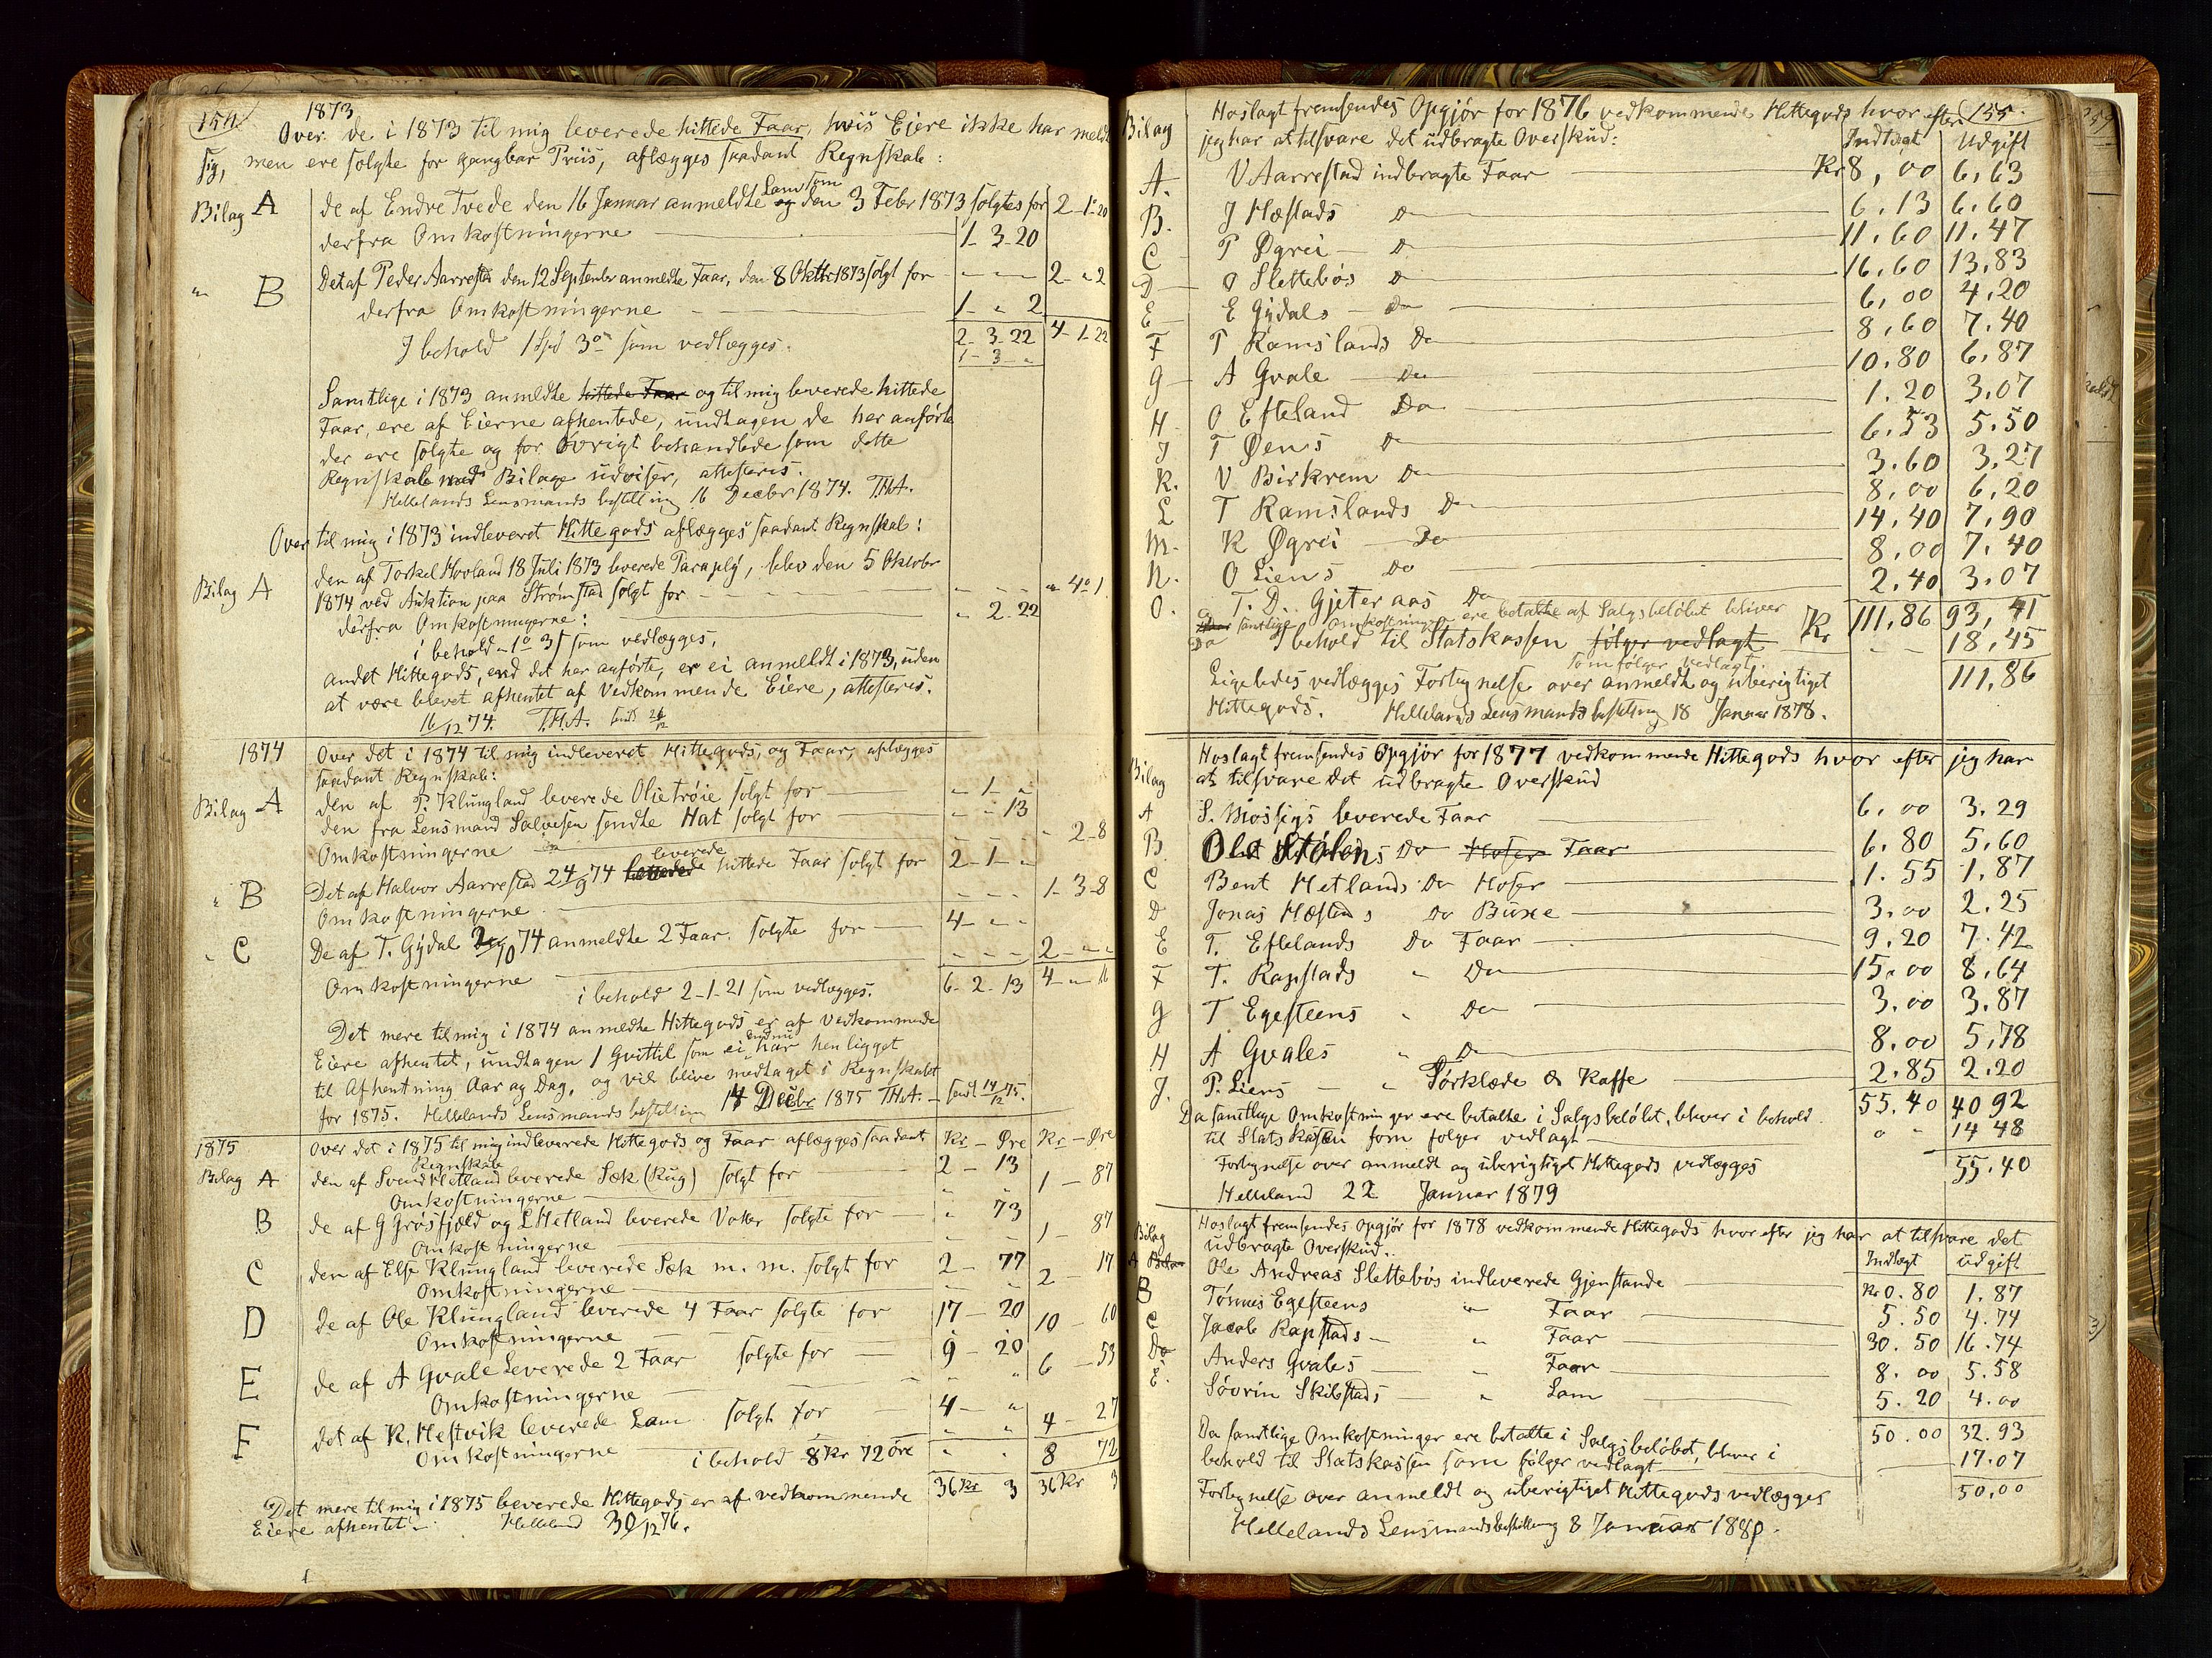 154
1873
Over de i 1873 til mig leverede hittede Faar, hvis Eiere ikke har meldt
sig, men ere solgte for gangbar Priis, aflægges saadant Regnskab:
Bilag A de af Endre Tvede den 16 Januar anmeldte Lam som og den 3 Febr 1873 solgtes for 2-1-20
derfra Omkostningerne 1-3-20
" B Det af Peder Aarrestad den 12 September anmeldte Faar, den 8 Oktbr 1873 solgt for - - - 2-"-2
derfra Omkostningerne 1-"-2
I behold 1 Spd 3 som vedlægges. 2-3-22 4-1-22
1-3-"
Samtlige i 1873 anmeldte hittede Faar og til mig leverede hittede
Faar, ere af Eierne afhentede, undtagen de her anførte
der ere solgte og for Øvrigt behandlede som dette
Regnskab med Bilage udviser, attesteres.
Hellelands Lensmands bestilling 16 Decbr 1874. T.H.A.
Over til mig i 1873 indleveret Hittegods aflægges saadant Regnskab:
Bilag A den af Torkel Hovland 18 Juli 1873 leverede Paraply, blev den 5 Oktobr
1874 ved Auktion paa Strømstad solgt for - - - " 4 " 1
derfra Omkostningerne: " 2-22
i behold 1 3 som vedlægges,
andet Hittegods, end det her anførte, er ei anmeldt i 1873, uden
at være blevet afhentet af Vedkommende Eiere, attesteres.
16/12 74. T.H.A. sendt 26/12
1874 Over det i 1874 til mig indleveret Hittegods, og Faar, aflægges
saadant Regnskab:
Bilag A den af P. Klungland leverede Olietrøie solgt for " 1 "
den fra Lensmand Salvesen sendte Hat solgt for " " 13
Omkostningerne " 2-8
" B Det af Halvor Aarrestad 24/9 74 leverede hittede Faar solgt for 2-1-"
Omkostningerne - - - 1-3-8
" C De af T. Gydal /10 74 anmeldte 2 Faar solgte for 4-"-"
Omkostningerne - - - 2-"-"
i behold 2-1-21 som vedlægges. 6-2-13 4-"-16
Det mere til mig i 1874 anmeldte Hittegods er af Vedkommende
Eiere afhentet, undtagen 1 Qvittil som ei endnu har henligget
til Afhentning Aar og Dag, og vil blive medtaget i Regnskabet
for 1875. Hellelands Lensmandsbestilling 14 Decbr 1875 T.H.A. - sendt 14/12 75.
1875 Over det i 1875 til mig indleverede Hittegods og Faar aflægges saadant Kr - Øre Kr - Øre
Regnskab
Bilag A den af Svend Hetland leverede Sæk (Rug) solgt for 2 - 13
Omkostningerne " " 1 - 87
B de af G Grøsfjeld og L Hetland leverede Votter solgte for " 73
Omkostningerne 1 - 87
C den af Else Klungland leverede Sæk m. m. solgt for 2 - 77
Omkostningerne 2 - 17
D de af Ole Klungland leverede 4 Faar solgte for 17 - 20
Omkostningerne 10 - 60
E de af A Gvale Leverede 2 Faar solgte for 9 - 20
Omkostningerne 6 - 53
F det af K. Hestvik leverede Lam solgt for 4 - "
Omkostningerne 4 - 27
i behold 8 Kr 72 øre " " 8 72
36 Kr 3 36 Kr 3
Det mere til mig i 1875 leverede Hittegods er af vedkommende
Eiere afhentet. Helleland 30/12 76.
155.
Bilag Hoslagt fremsendes Opgjør for 1876 vedkommende Hittegods hvor efter
jeg har at tilsvare det udbragte Overskud: Indtægt Udgift
A. V Aarrestad indbragte Faar Kr 8,00 6,63
B. J Hæstads Do 6.13 6.60
C T Øgrei Do 11.60 11.47
D O Slettebøs Do 16.60 13.83
E E Gydals Do 6,00 4.20
F T Ramslands Do 8,60 7.40
G A Gvale Do 10.80 6,87
H O Efteland Do 1.20 3.07
J T Øens Do 6.53 5.50
K. V Birkrem Do 3.60 3.27
L T Ramslands Do 8,00 6,20
M. K Øgrei Do 14.40 7,90
N. O Liens Do 8.00 7.40
O. T. D. Gjeteraas Do 2.40 3.07
Da samtlige Omkostninger ere betalte af Salgsbeløbet bliver Kr 111,86 93,41
I behold til Statskassen følger vedlagt - - 18,45
som følger vedlagt.
Ligeledes vedlægges Fortegnelse over anmeldt og uberigtiget 111,86
Hittegods. Hellelands Lensmandsbestilling 18 Januar 1878.
Bilag Hoslagt fremsendes Opgjør for 1877 vedkommende Hittegods hvor efter jeg har
at tilsvare det udbragte Overskud
A S. Mossigs leverede Faar 6.00 3.29
B. Ole Stølens Do Hoser Faar 6.80 5.60
C Bent Hetlands Do Hoser 1.55 1.87
D Jonas Hæstens Do Buxe 3.00 2.25
E T. Eftelands Do Faar 9.20 7.42
F T. Rapstads " Do 15.00 8.64
G T Egesteens " Do 3.00 3.87
H A Gvales " Do 8.00 5,78
J. P. Liens " Tørklæde & Kaffe 2.85 2.20
Da samtlige Omkostninger ere betalte i Salgsbeløbet, bliver i behold 55.40 40 92
til Statskassen som følger vedlagt " " 14 48
Fortegnelse over anmeldt og uberigtiget Hittegods vedlægges 55.40
Helleland 22 Januar 1879
Bilag Hoslagt fremsendes Opgjør for 1878 vedkommende Hittegods hvor efter jeg har at tilsvare det
udbragte Overskud. Indtægt udgift
A Ole Andreas Slettebøs indleverede Gjenstande Kr 0.80 1.87
B Tønnes Egesteens " Faar 5.50 4.74
C Jacob Rapstads " Faar 30.50 16.74
D Anders Gvales " Faar 8.00 5.58
E. Søvrin Skibstads " Lam 5.20 4.00
Da samtlige Omkostninger ere betalte i Salgsbeløbet, bliver i 50.00 32.93
behold til Statskassen som følger vedlagt 17.07
Fortegnelse over anmeldt og uberigtiget Hittegods vedlægges 50,00
Hellelands Lensmandsbestilling 8 Januar 1880.